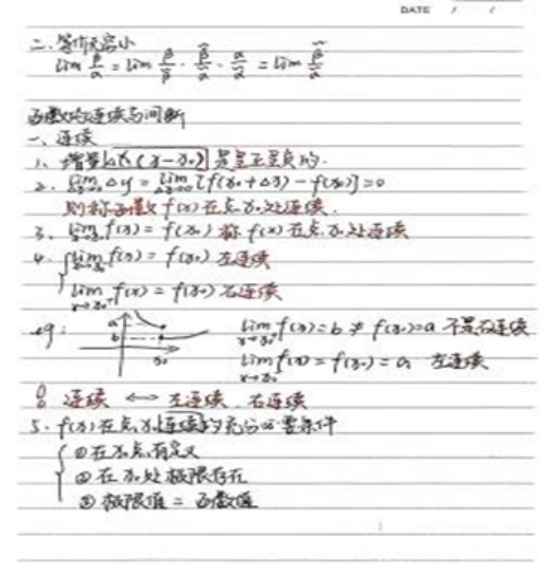 DATE / /
二、等价无穷小
lim β/α = lim β/β̃ · β̃/α̃ · α̃/α = lim β̃/α̃
函数的连续与间断
一、连续
1、增量Δx(x-x₀)是可正可负的.
2. lim Δx→0 Δy = lim Δx→0 [f(x₀+Δx)-f(x₀)]=0
则称函数f(x)在点x₀处连续.
3、lim x→x₀ f(x) = f(x₀) 称f(x)在点x₀处连续
4. { lim x→x₀⁻ f(x) = f(x₀) 左连续
lim x→x₀⁺ f(x) = f(x₀) 右连续
eg: a b x₀ lim x→x₀⁺ f(x)=b ≠ f(x₀)=a 不是右连续
lim x→x₀⁻ f(x) = f(x₀) = a 左连续
连续 ↔ 左连续.右连续
5. f(x)在点x₀连续的充分必要条件
{ ①在x₀点有定义
②在x₀处极限存在
③极限值 = 函数值